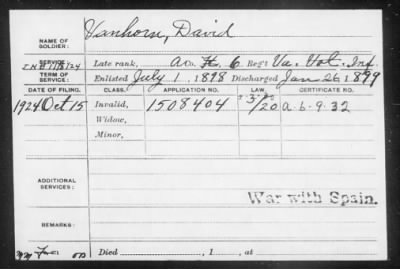 NAME OF SOLDIER: Vanhorn, David
SERVICE: Late rank, Co. 6 Reg't Va. Vol. Inf.
TERM OF SERVICE: Enlisted July 1, 1898 Discharged Jan 26, 1899
DATE OF FILING. CLASS. APPLICATION NO. LAW. CERTIFICATE NO.
1924 Oct 15 Invalid, 1508404 a-6-9-32
Widow,
Minor,
ADDITIONAL SERVICES:
War with Spain.
REMARKS:
Died , 1 , at